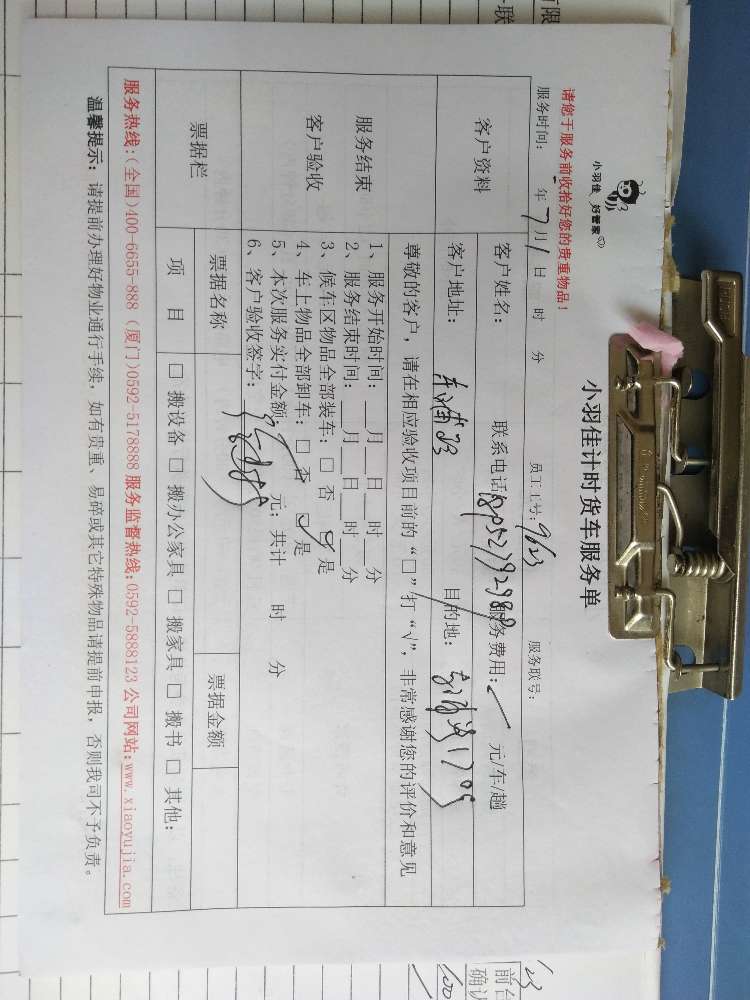 小羽佳 好管家
小羽佳计时货车服务单
请您于服务前收拾好您的贵重物品！
服务时间： 年7月1日 时 分 员工工号：9623 服务联号：
客户资料
客户姓名： 联系电话 服务费用： 元/车/趟
客户地址： 目的地：
服务结束
客户验收
尊敬的客户，请在相应验收项目前的“□”打“√”，非常感谢您的评价和意见
1、服务开始时间：__月__日__时__分
2、服务结束时间：__月__日__时__分
3、候车区物品全部装车：□ 否 ☑ 是
4、车上物品全部卸车：□ 否 ☑ 是
5、本次服务实付金额 元；共计 时 分
6、客户验收签字：
票据栏
票据名称 票据金额
项 目 □ 搬设备 □ 搬办公家具 □ 搬家具 □ 搬书 □ 其他：
服务热线：(全国)400-6655-888 (厦门)0592-5178888 服务监督热线：0592-5888123 公司网站：www.xiaoyujia.com
温馨提示：请提前办理好物业通行手续，如有贵重、易碎或其它特殊物品请提前申报，否则我司不予负责。